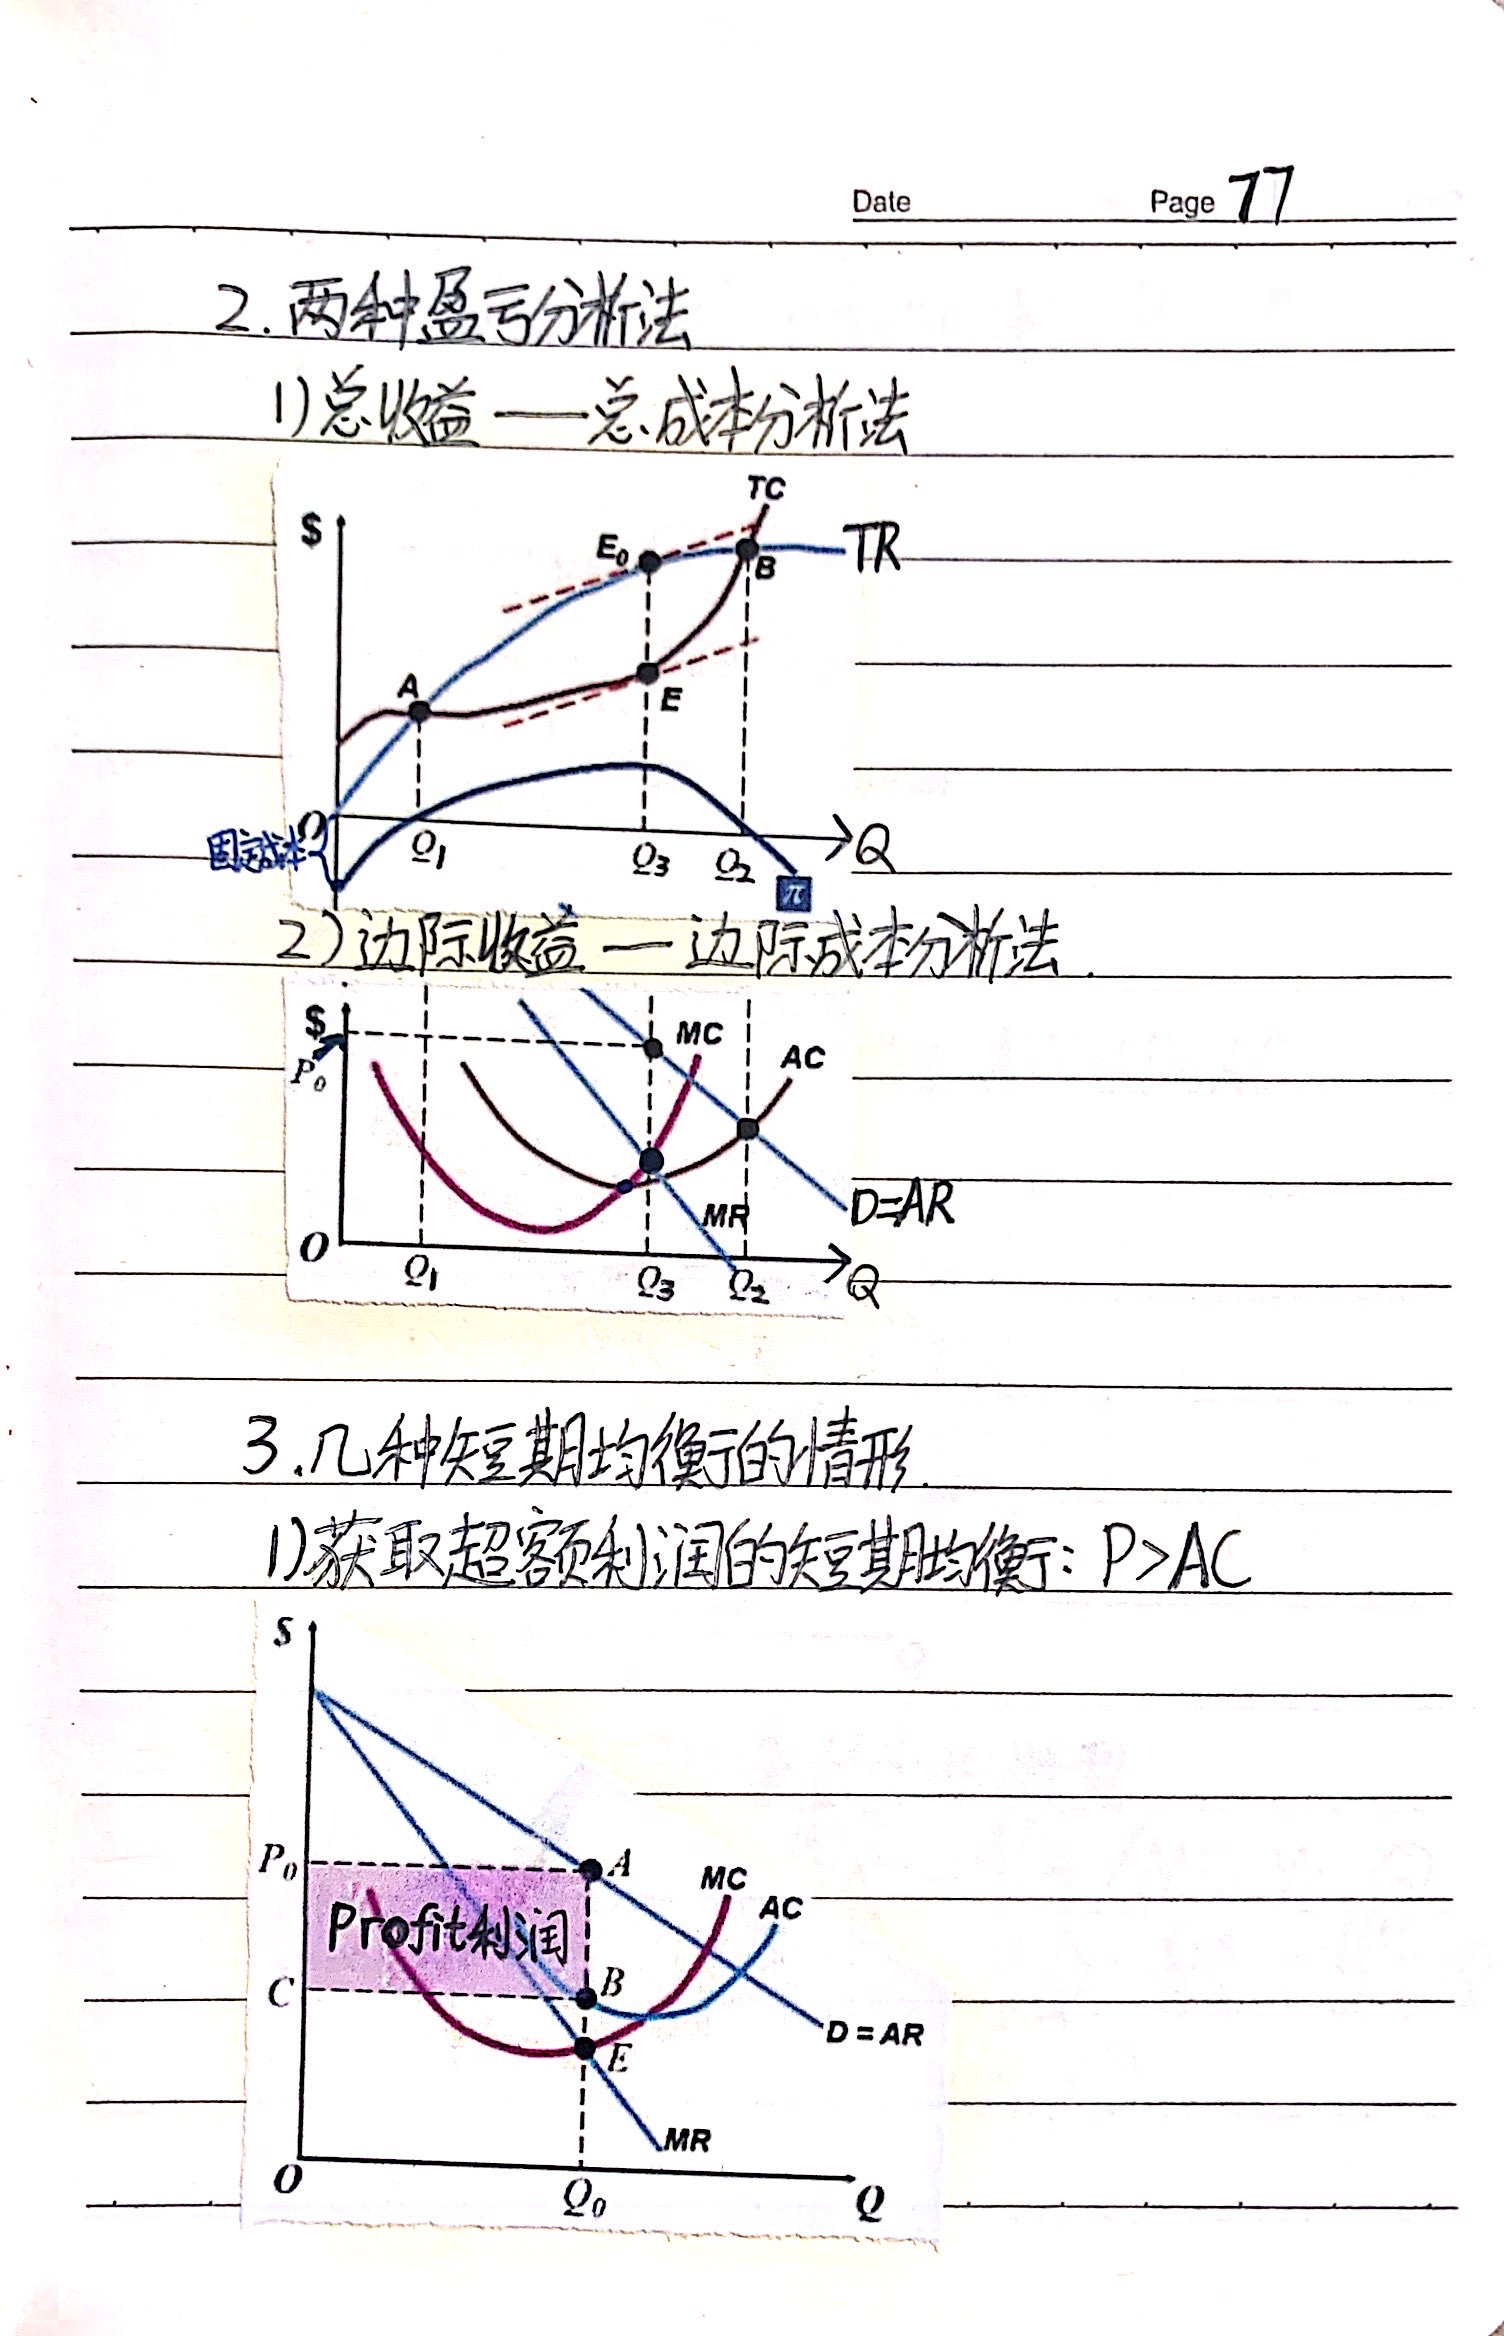 Date Page 77
2. 两种盈亏分析法
1) 总收益——总成本分析法
TC
$ E0 B TR
A E
O Q1 Q3 Q2 Q
固定成本
π
2) 边际收益—边际成本分析法.
$ MC AC
P0
MR D=AR
O Q1 Q3 Q2 Q
3. 几种短期均衡的情形.
1) 获取超额利润的短期均衡: P>AC
$
P0 A MC
Profit利润 AC
C B
E D=AR
MR
O Q0 Q